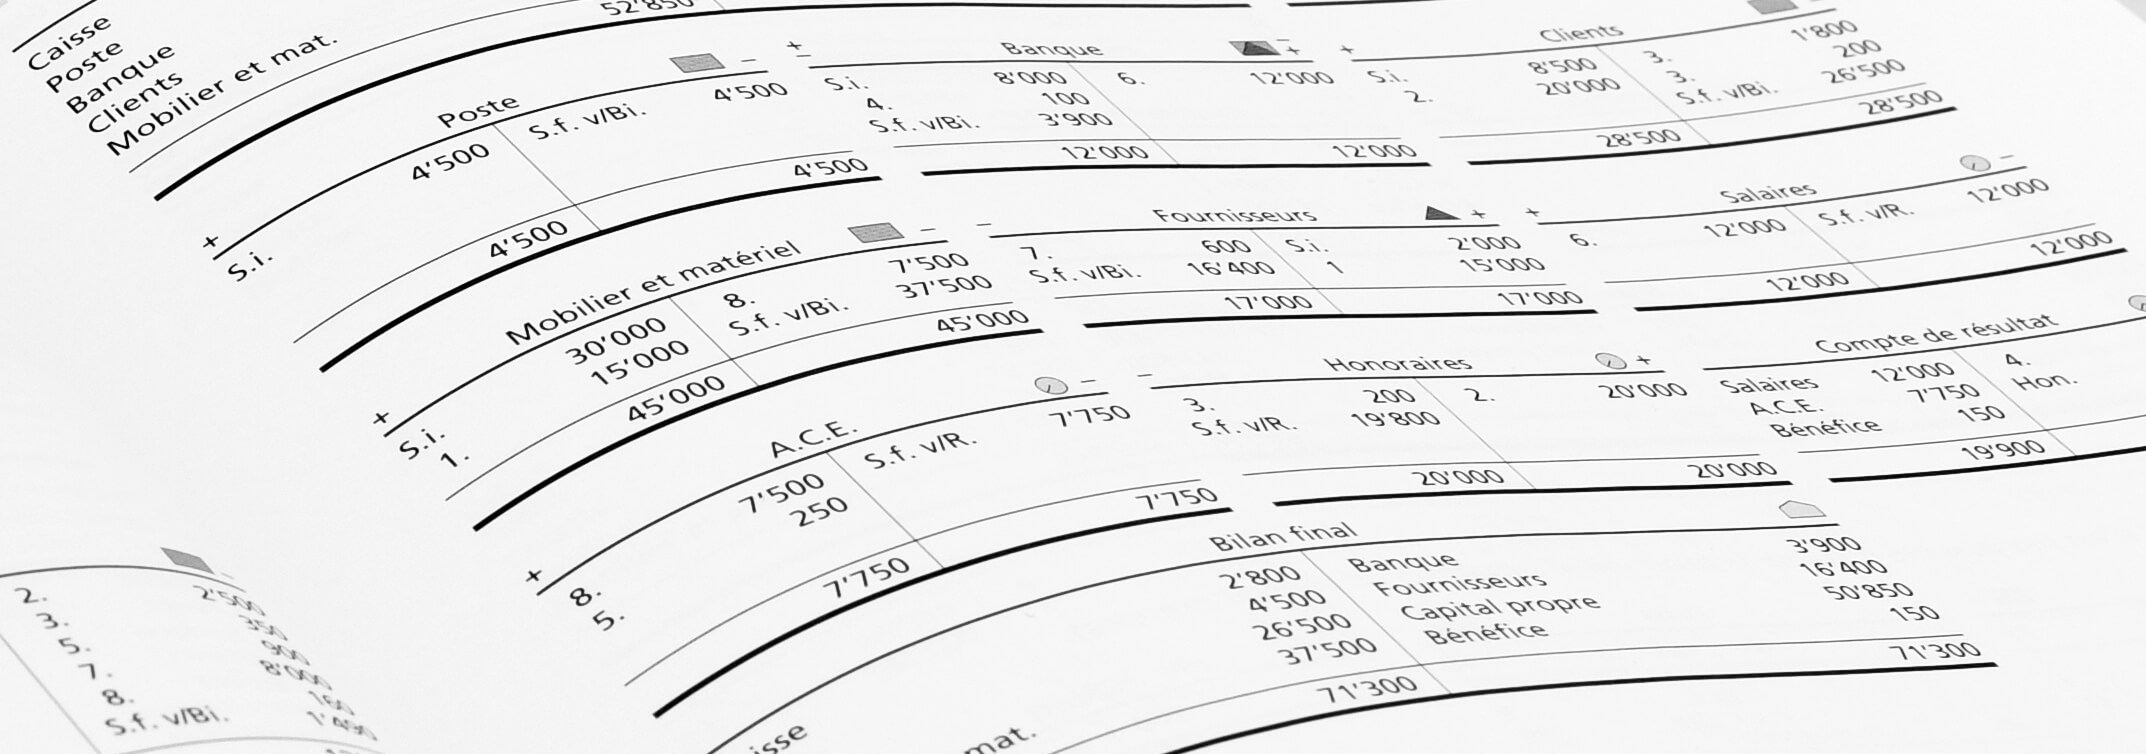 52'850
Caisse
Poste
Banque
Clients
Mobilier et mat.
Poste −
+ S.i. 4'500 S.f. v/Bi. 4'500
4'500 4'500
+ − Banque − +
S.i. 8'000 6. 12'000
4. 100
S.f. v/Bi. 3'900
12'000 12'000
+ Clients −
S.i. 8'500 3. 1'800
2. 20'000 3. 200
S.f. v/Bi. 26'500
28'500 28'500
+ Mobilier et matériel −
S.i. 30'000 8. 7'500
1. 15'000 S.f. v/Bi. 37'500
45'000 45'000
− Fournisseurs +
7. 600 S.i. 2'000
S.f. v/Bi. 16'400 1 15'000
17'000 17'000
+ Salaires −
6. 12'000 S.f. v/R. 12'000
12'000 12'000
+ A.C.E. −
8. 7'500 S.f. v/R. 7'750
5. 250
7'750 7'750
− Honoraires +
3. 200 2. 20'000
S.f. v/R. 19'800
20'000 20'000
Compte de résultat
Salaires 12'000 4.
A.C.E. 7'750 Hon.
Bénéfice 150
19'900
Bilan final
2'800 Banque 3'900
4'500 Fournisseurs 16'400
26'500 Capital propre 50'850
37'500 Bénéfice 150
mat.
71'300 71'300
−
2. 2'500
3. 350
5. 900
7. 8'000
8. 160
S.f. v/Bi.